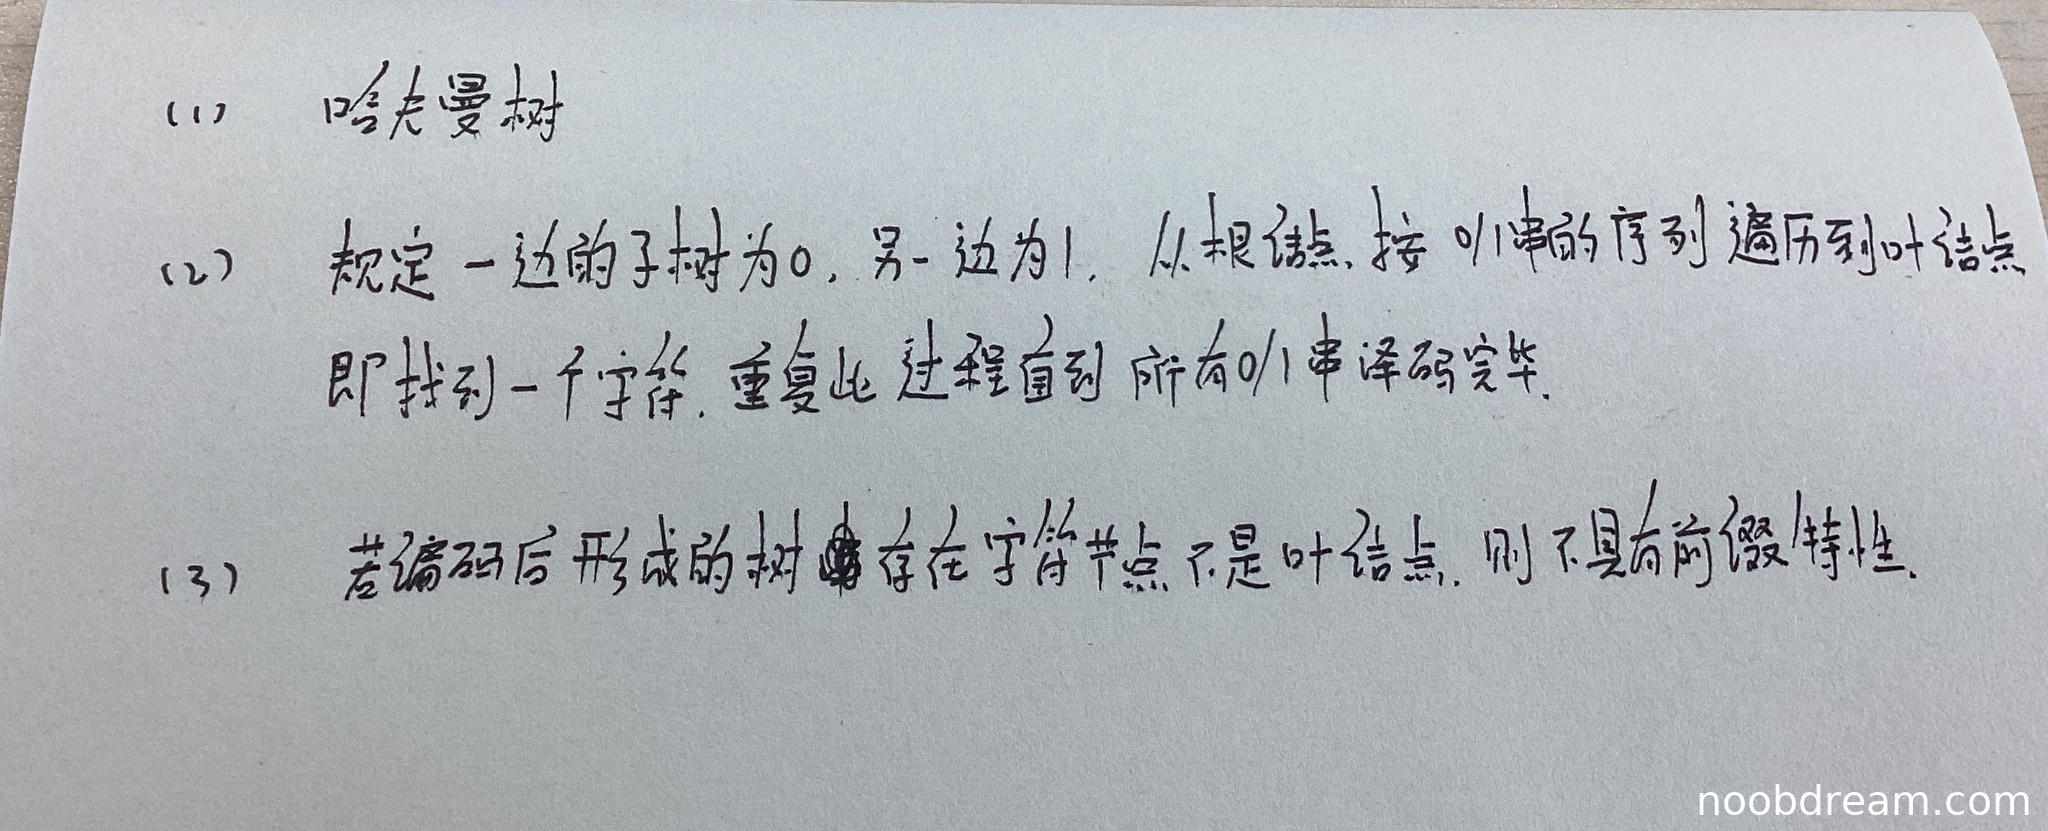 (1) 哈夫曼树
(2) 规定一边的子树为0,另一边为1. 从根结点,按0/1串的序列遍历到叶结点
即找到一个字符.重复此过程直到所有0/1串译码完毕.
(3) 若编码后形成的树存在字符节点不是叶结点.则不具有前缀特性.
noobdream.com